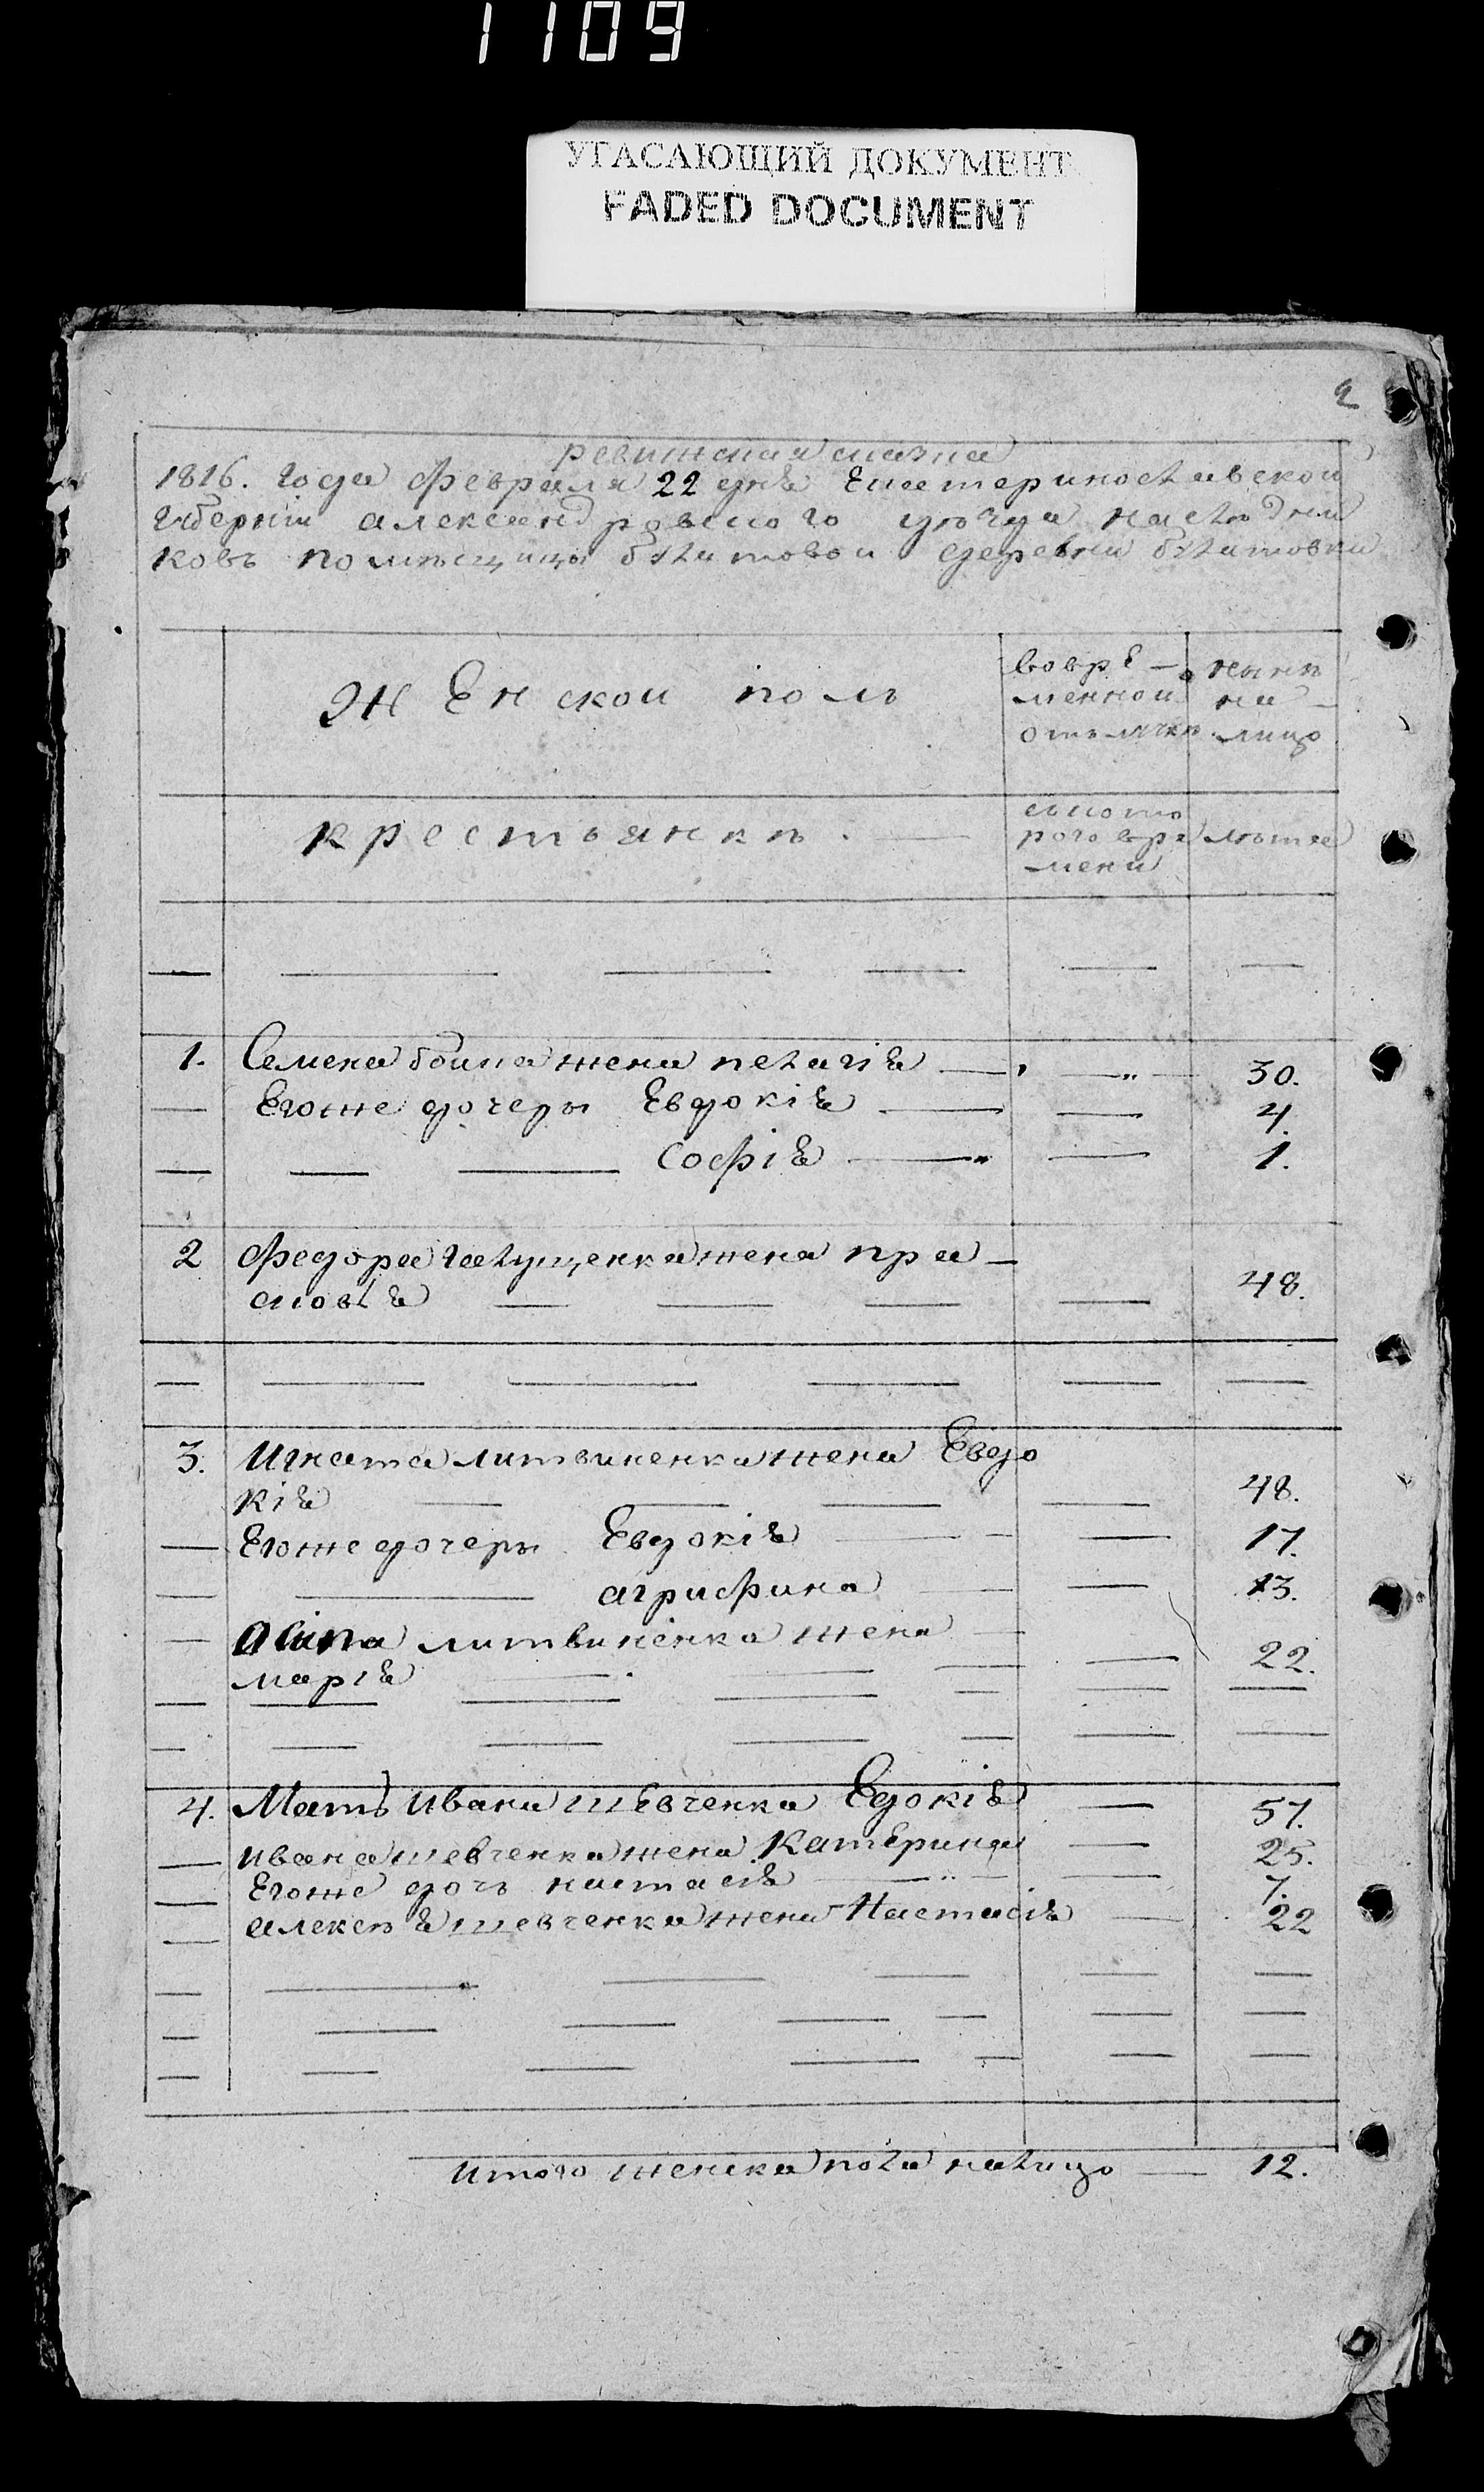 1109
УГАСАЮЩИЙ ДОКУМЕНТ
FADED DOCUMENT
2
ревижская сказка
1816. года февраля 22 дня Екатеринославской
губерніи александровского уѣзда наслѣдни
ковъ помѣщицы булатовои деревни булатовки
Женскои полъ
вовре-
менной
отълучкѣ
нынѣ
на
лицо
крестьянкѣ.
съкото
рого вре
мени
лѣта
1. Семена боика жена пелагія — 30.
Егоже дочеры Евдокія — 4.
— Софія — 1.
2 Федора галущенка жена пра-
сковія — 48.
3. Игната литвиненка жена Евдо
кія — 48.
Егоже дочеры Евдокія — 17.
— агрифина — 13.
осипа литвиненка жена
марія — 22.
4. Мать Ивана шевченка Едокія — 57.
ивана шевченка жена Катерина — 25.
Егоже дочь настасія — 7.
алексѣя шевченка жена Настасія — 22
Итого женска пола налицо — 12.